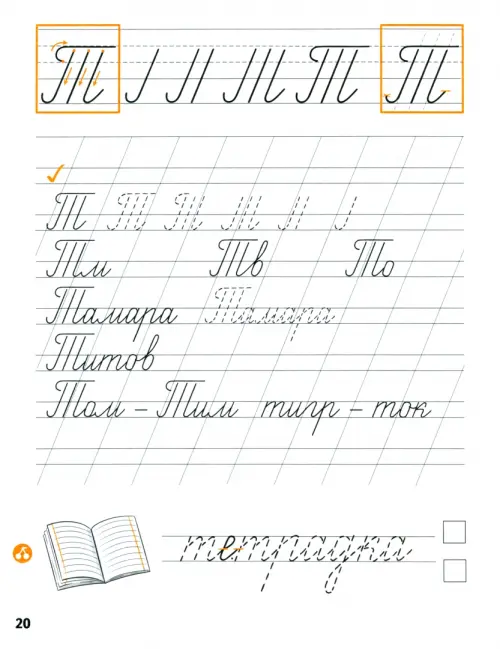 Т Т Т
Т Т Т
Тм Тв То
Тамара Тамара
Титов
Том – Тим тигр – ток
тетрадка
20